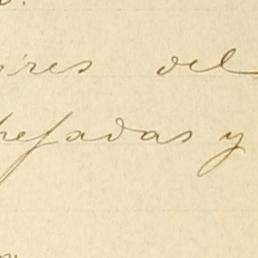 ires del
hefadas y